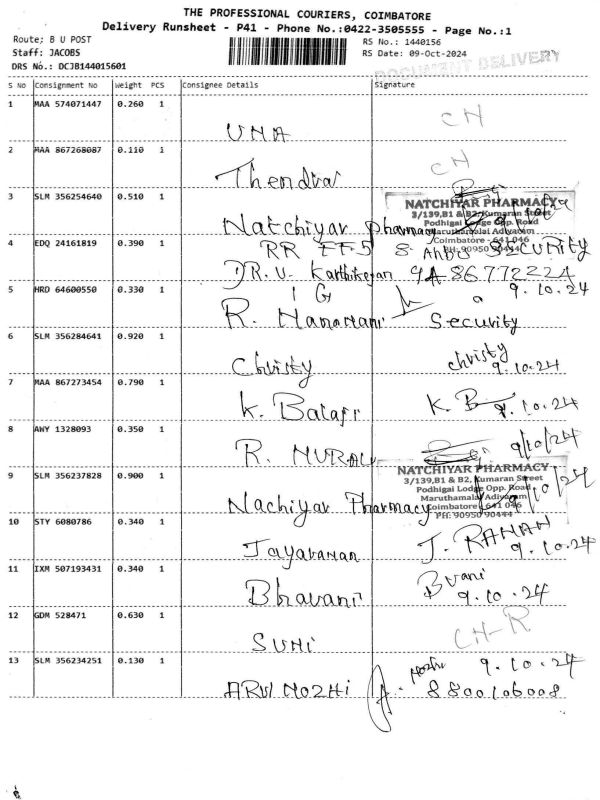 THE PROFESSIONAL COURIERS, COIMBATORE
Delivery Runsheet - P41 - Phone No.:0422-3505555 - Page No.:1
Route; B U POST
RS No.: 1440156
Staff: JACOBS
RS Date: 09-Oct-2024
DRS No.: DCJB144015601
DOCUMENT DELIVERY
S No Consignment No Weight PCS Consignee Details Signature
1 MAA 574071447 0.260 1
UMA CH
2 MAA 867268087 0.110 1
Thendral CH
3 SLM 356254640 0.510 1
NATCHIYAR PHARMACY
3/139,B1 & B2, Kumaran Street
Podhigai Lodge Opp. Road
Maruthamalai Adivaram
Coimbatore - 641 046
PH: 90950 90444
Natchiyar pharmacy
4 EDQ 24161819 0.390 1
RR FF5 8 SECURITY
DR. U. Karthikeyan 9486772224
5 HRD 64600550 0.330 1
9.10.24
R. Security
6 SLM 356284641 0.920 1
Christy christy
9.10.24
7 MAA 867273454 0.790 1
K. Balaji K. B 9.10.24
8 AWY 1328093 0.350 1
R. MURALI 9/10/24
9 SLM 356237828 0.900 1
NATCHIYAR PHARMACY
3/139,B1 & B2, Kumaran Street
Podhigai Lodge Opp. Road
Maruthamalai Adivaram
Coimbatore - 641 046
PH: 90950 90444
9/10/24
Nachiyar Pharmacy
10 STY 6080786 0.340 1
Jayaraman J. RAMAN
9.10.24
11 IXM 507193431 0.340 1
Bhavani Bvani
9.10.24
12 GDM 528471 0.630 1
SUMI CH-R
13 SLM 356234251 0.130 1
Mozhi 9.10.24
ARUL MOZHI 8800106008